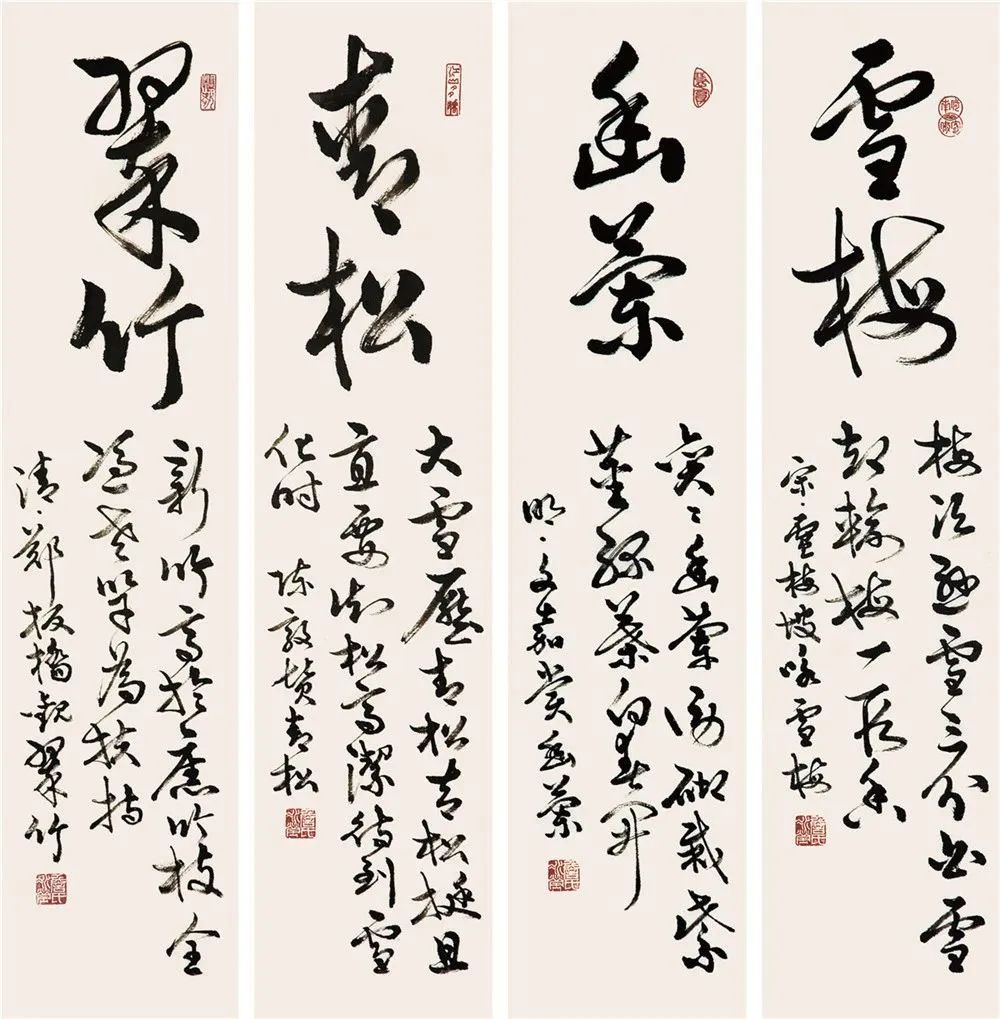 雪梅
梅須遜雪三分白雪
却輸梅一段香
宋·盧梅坡咏雪梅
幽蘭
奕奕幽蘭傍砌栽紫
莖綠葉向春開
明·文嘉賞幽蘭
青松
大雪壓青松青松挺且
直要知松高潔待到雪
化時 陳毅贊青松
翠竹
新竹高於舊竹枝全
憑老竿為扶持
清·鄭板橋觀翠竹